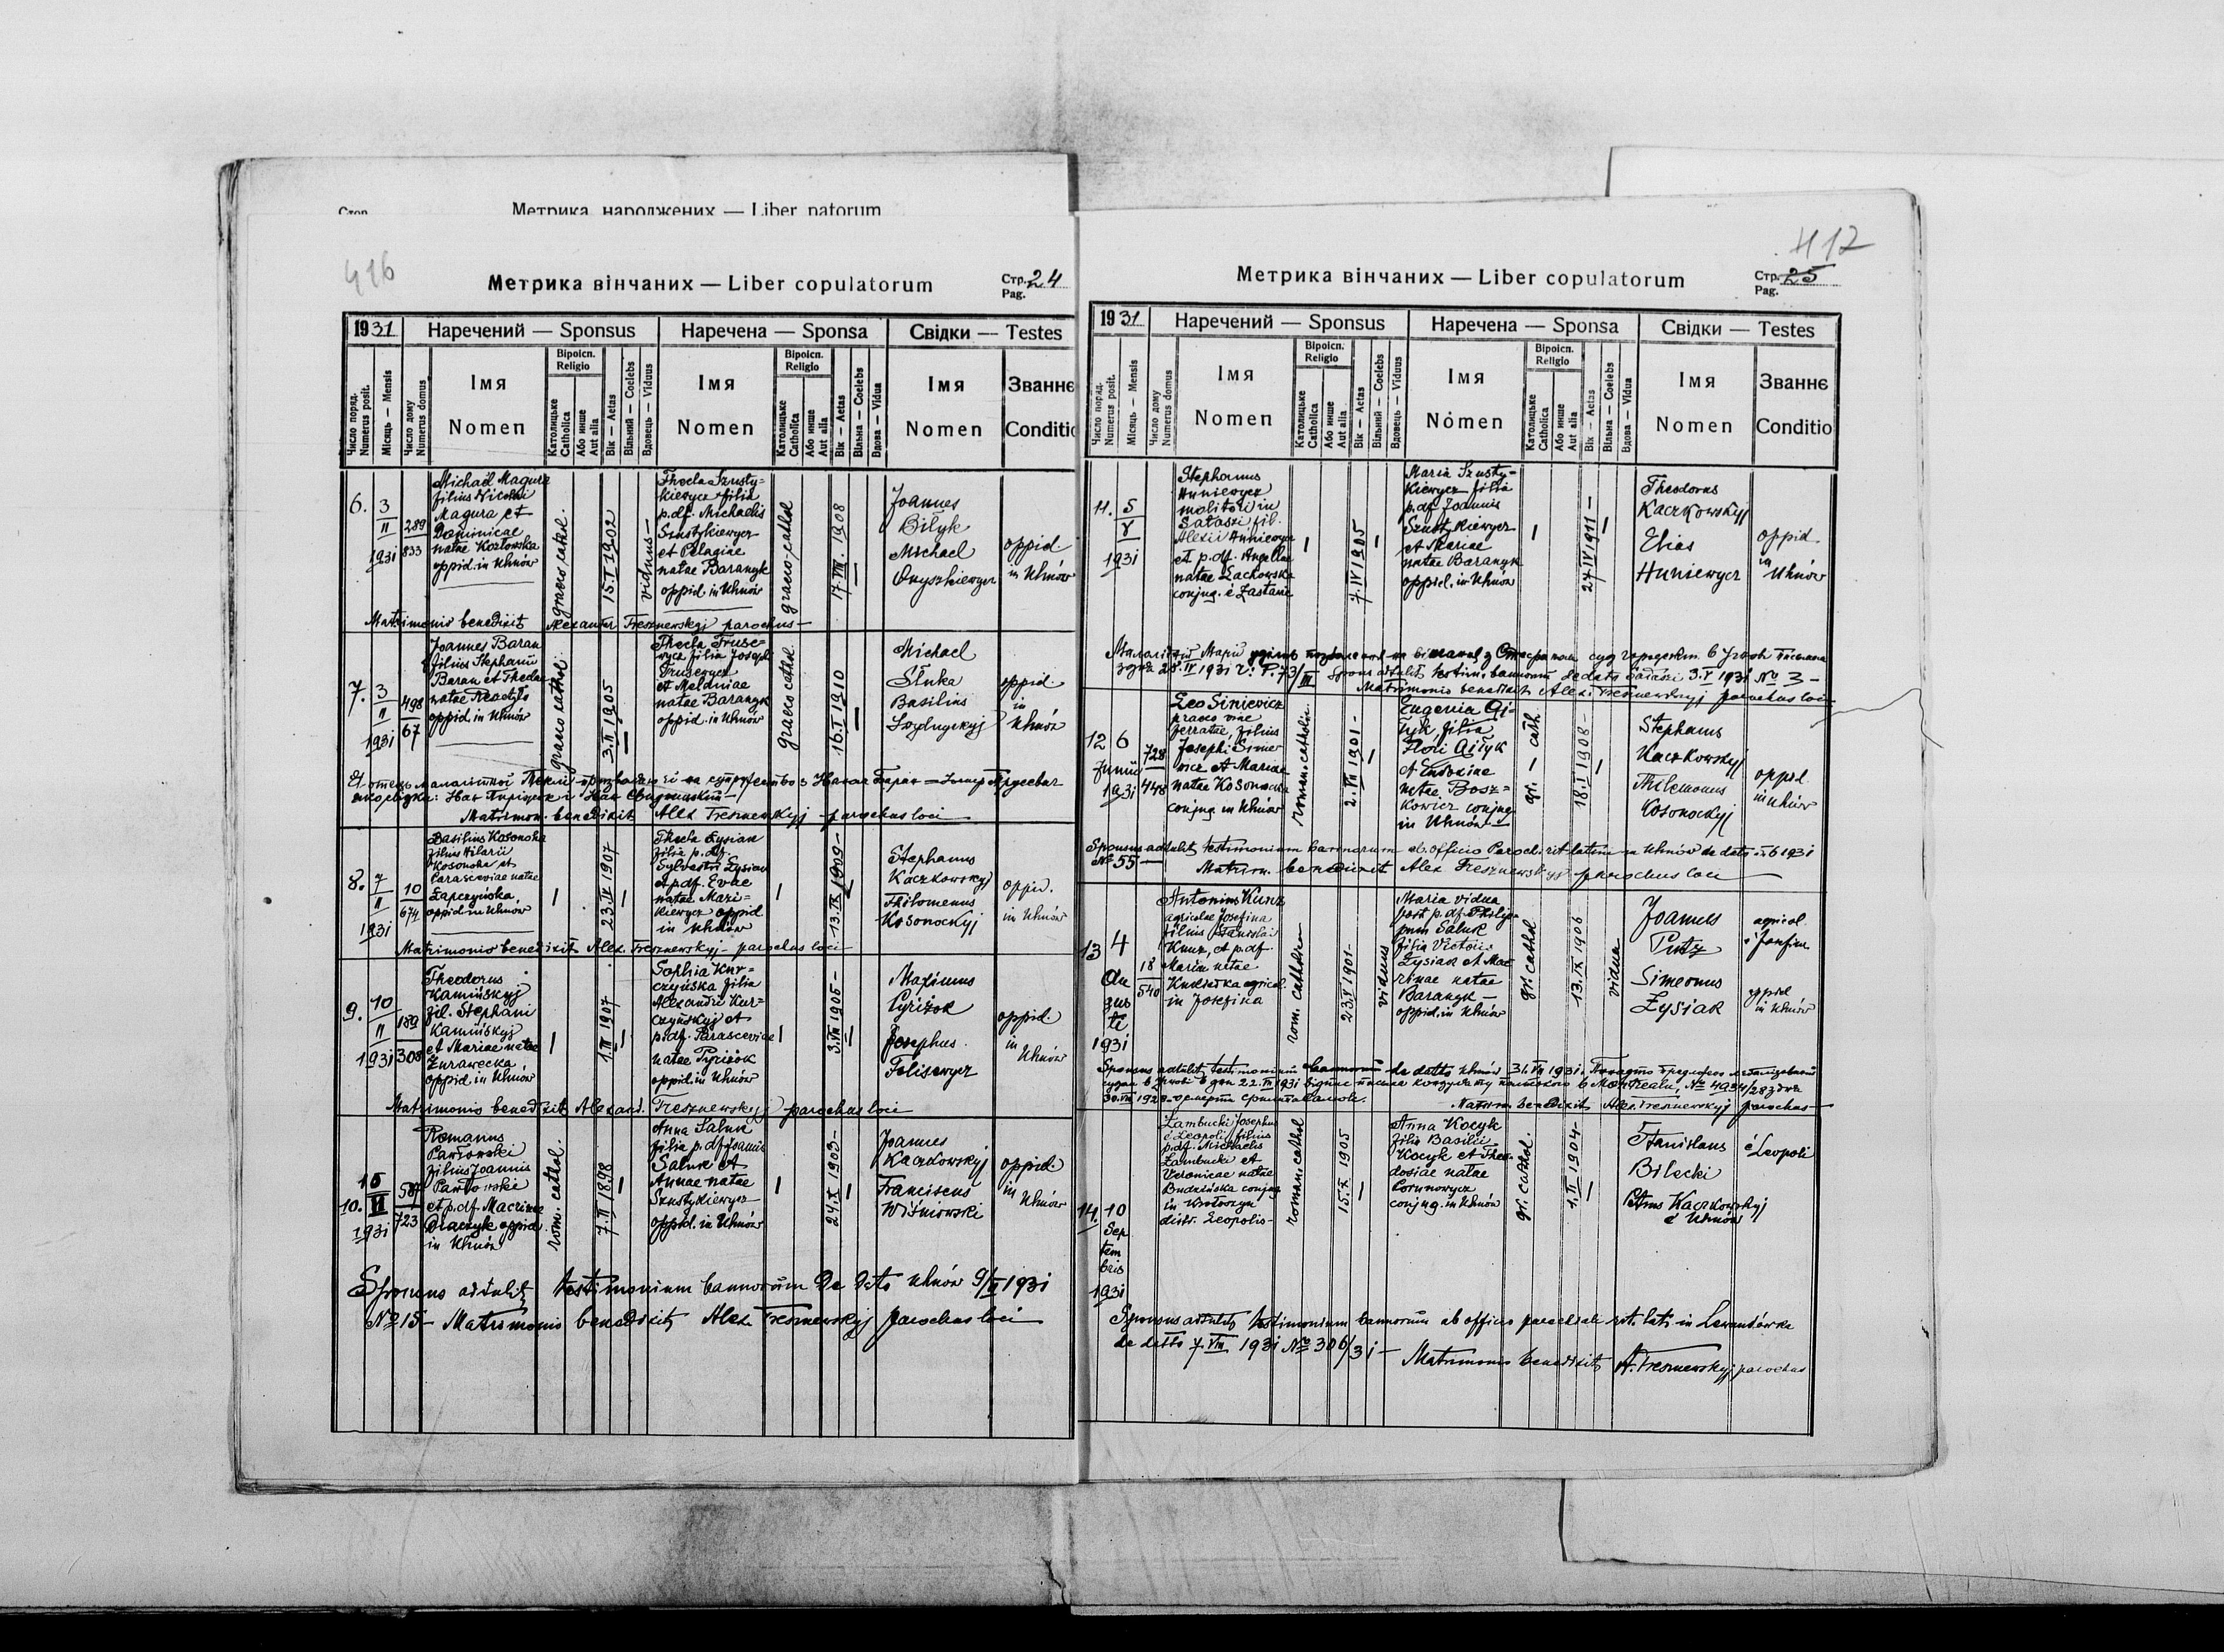 Стор.
Метрика народжених — Liber natorum
416
Метрика вінчаних — Liber copulatorum
Стр. 24
Pag.
1931
Наречений — Sponsus
Наречена — Sponsa
Свідки — Testes
Число поряд.
Numerus posit.
Місяць — Mensis
Число дому
Numerus domus
Імя
Nomen
Віроісп.
Religio
Католицьке
Catholica
Або инше
Aut alia
Вік — Aetas
Вільний — Coelebs
Вдовець — Viduus
Імя
Nomen
Віроісп.
Religio
Католицьке
Catholica
Або инше
Aut alia
Вік — Aetas
Вільна — Coelebs
Вдова — Vidua
Імя
Nomen
Званнє
Conditio
6.
3
II
1931
289
833
Michaël Magura
filius Nicolai
Magura et
Dominicae
natae Kozłowska
oppid. in Uhnów
graeco cathol.
15.I 1902
viduus —
Thecla Szusty-
kiewycz filia
p.df. Michaelis
Szustykiewycz
et Pelagiae
natae Baranyk
oppid in Uhnów
graeco-cathol
17.VIII.1908
Joannes
Biłyk
Michael
Onyszkiewycz
oppid
in Uhnów
Matrimonio benedixit Alexander Tresznewskyj parochus —
7.
3
II
1931
498
67
Joannes Baran
filius Stephani
Baran et Theclae
natae
oppid. in Uhnów
graeco cathol.
3.II 1905
Thecla Truse-
wycz filia Josephi
Trusewycz
et Melaniae
natae Baranyk
oppid. in Uhnów
graeco cathol
16.I 1910
Michael
Śluka
Basilius
oppid.
in
Uhnów
Matrimon. benedixit Alex Tresznewskyj — parochus loci
8.
7
II
1931
10
674
Basilius Kosonocka
filius Hilarii
Kosonocka et
Parasceviae natae
Łapczyńska
oppid in Uhnów
23.IV 1907
Thecla Łysiak
filia p.df.
Sylvestri Łysiak
et p.df. Evae
natae Mazi-
kiewycz oppid
in Uhnów
13.IX 1909 —
Stephanus
Kaczkowskyj
Philomenus
Kosonockyj
oppid.
in Uhnów
Matrimonio benedixit Alex. Tresznewskyj — parochus loci
9.
10
II
1931
189
308
Theodorus
Kamińskyj
fil. Stephani
Kamińskyj
et Mariae natae
Żurawecka
oppid. in Uhnów
1.III 1907
Sophia Kur-
czyńska filia
Alexandri Kur-
czyńskyj et
p.df. Parasceviae
natae Pyriżok
oppid. in Uhnów
3.VIII 1905 —
Maximus
Pyriżok
Josephus
Felisewycz
oppid
in
Uhnów
Matrimonio benedixit Alexand. Tresznewskyj parochus loci
10.
15
VI
1931
587
723
Romanus
Pawłowski
filius Joannis
Pawłowski
et p.df. Macrinae
Diaczyk oppid.
in Uhnów
rom. cathol.
7.II 1898
Anna Saluk
filia p.df Joannis
Saluk et
Annae natae
Szustykiewycz
oppid. in Uhnów
24.X 1903 —
Joannes
Kaczkowskyj
Franciscus
Wiśniowski
oppid.
in
Uhnów
Sponsus attulit testimonium bannorum de dato Uhnów 9/VI 1931
№ 15 — Matrimonio benedixit Alex. Tresznewskyj parochus loci
412
Метрика вінчаних — Liber copulatorum
Стр. 25
Pag.
1931
Наречений — Sponsus
Наречена — Sponsa
Свідки — Testes
Число поряд.
Numerus posit.
Місяць — Mensis
Число дому
Numerus domus
Імя
Nomen
Віроісп.
Religio
Католицьке
Catholica
Або инше
Aut alia
Вік — Aetas
Вільний — Coelebs
Вдовець — Viduus
Імя
Nomen
Віроісп.
Religio
Католицьке
Catholica
Або инше
Aut alia
Вік — Aetas
Вільна — Coelebs
Вдова — Vidua
Імя
Nomen
Званнє
Conditio
11.
5
V
1931
Stephanus
Huniewycz
molitor in
Sałaszi fil.
Alexii Huniewycz
et p.df. Angelae
natae Lachowska
conjug. è Zastawie
7.IV 1905
Maria Szusty-
kiewycz filia
p.df. Joannis
Szustykiewycz
et Mariae
natae Baranyk
oppid. in Uhnów
27 IV 1911 —
Theodorus
Kaczkowskyj
Elias
Huniewycz
oppid.
in
Uhnów
Matrimonio benedixit Alex. Tresznewskyj parochus loci
12
6
Junii
1931
728
448
Leo Siniewicz
praeco viae
ferratae, filius
Josephi Sinie-
wicz et Mariae
natae Kosonocka
conjug in Uhnów
roman. catholic.
2.VII 1901 —
Eugenia Gi-
żyk filia
Flori Giżyk
et Eudociae
natae Bosz-
kowicz conjug
in Uhnów —
gr. — cath.
18.I 1908 —
Stephanus
Kaczkowskyj
Philemonus
Kosonockyj
oppid.
in Uhnów
Sponsus attulit testimonium bannorum ab officio Paroch. rit. latini in Uhnów de dato 6 1931
№ 55 — Matrim. benedixit Alex Tresznewskyj parochus loci
13
4
Au
gus
ti
1931
18
540
Antonius Kunz
agricola Josefina
filius Stanislai
Kunz, et p.df
Mariae natae
agricol.
in Josefina
rom. catholica
23.V 1901 —
viduus
Maria vidua
post p.df. Philip-
pum Saluk
filia Victoris
Łysiak et Mac-
rinae natae
Baranyk —
oppid. in Uhnów
gr. cathol
13.IX 1906
vidua
Joannes
Putz
Simeonus
Łysiak
agricol.
è Josefina
oppid
in Uhnów
Sponsus attulit testimonium bannorum de dato Uhnów 31.VII 1931.
Matrim. benedixit Alex. Tresznewskyj parochus —
14.
10
Sep
tem
bris
1931
Zambucki Josephus
è Leopoli, filius
p.df. Michaelis
Zambucki et
Veronicae natae
Budzińska conjug
in
distr. Leopolis —
roman. cathol
15.X 1905
Anna Kocyk
filia Basilii
Kocyk et Theo-
dosiae natae
Corunowycz
conjug. in Uhnów
gr. cathol.
1.II 1904 —
Stanislaus
Bilecki
Kaczkowskyj
è Uhnów
è Leopoli
Sponsus attulit testimonium bannorum ab officio parochiali rit. lat. in Lewandówka
de dato 7 VIII 1931 № 306/31 — Matrimonio benedixit A. Tresznewskyj parochus